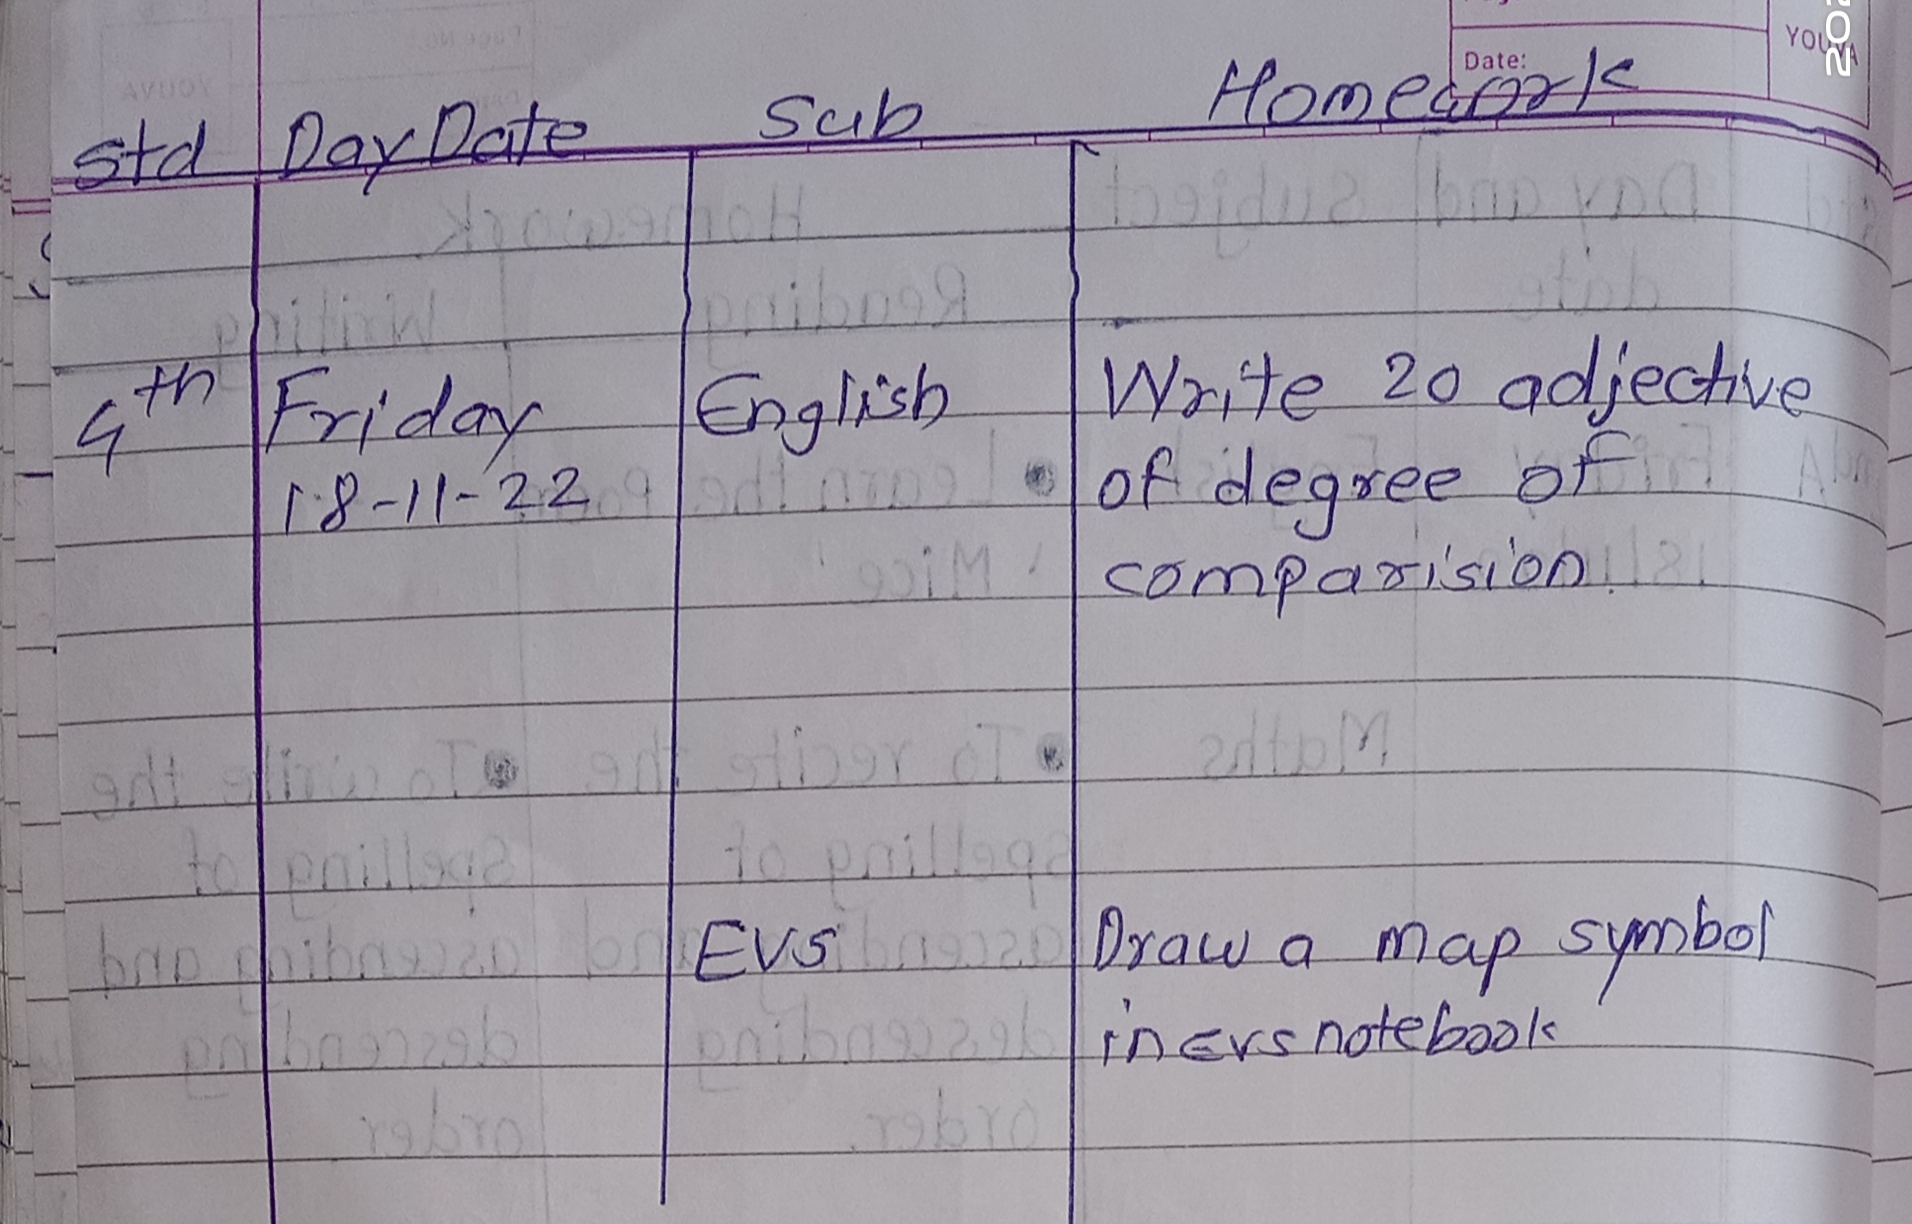 Date:
YOUVA
202
std Day Date Sub Homework
4th Friday English Write 20 adjective
18-11-22 of degree of
comparision.
EVS Draw a map symbol
in evs notebook